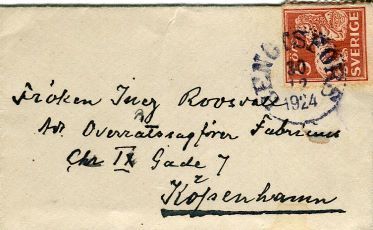 SVERIGE
BENGTSFORS
30
12
1924
Fröken Inez Roosval
Adr Overrätssagförer Fabricius
Chr IX Gade 7
Köpenhamn